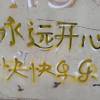 永远开心
快快乐乐